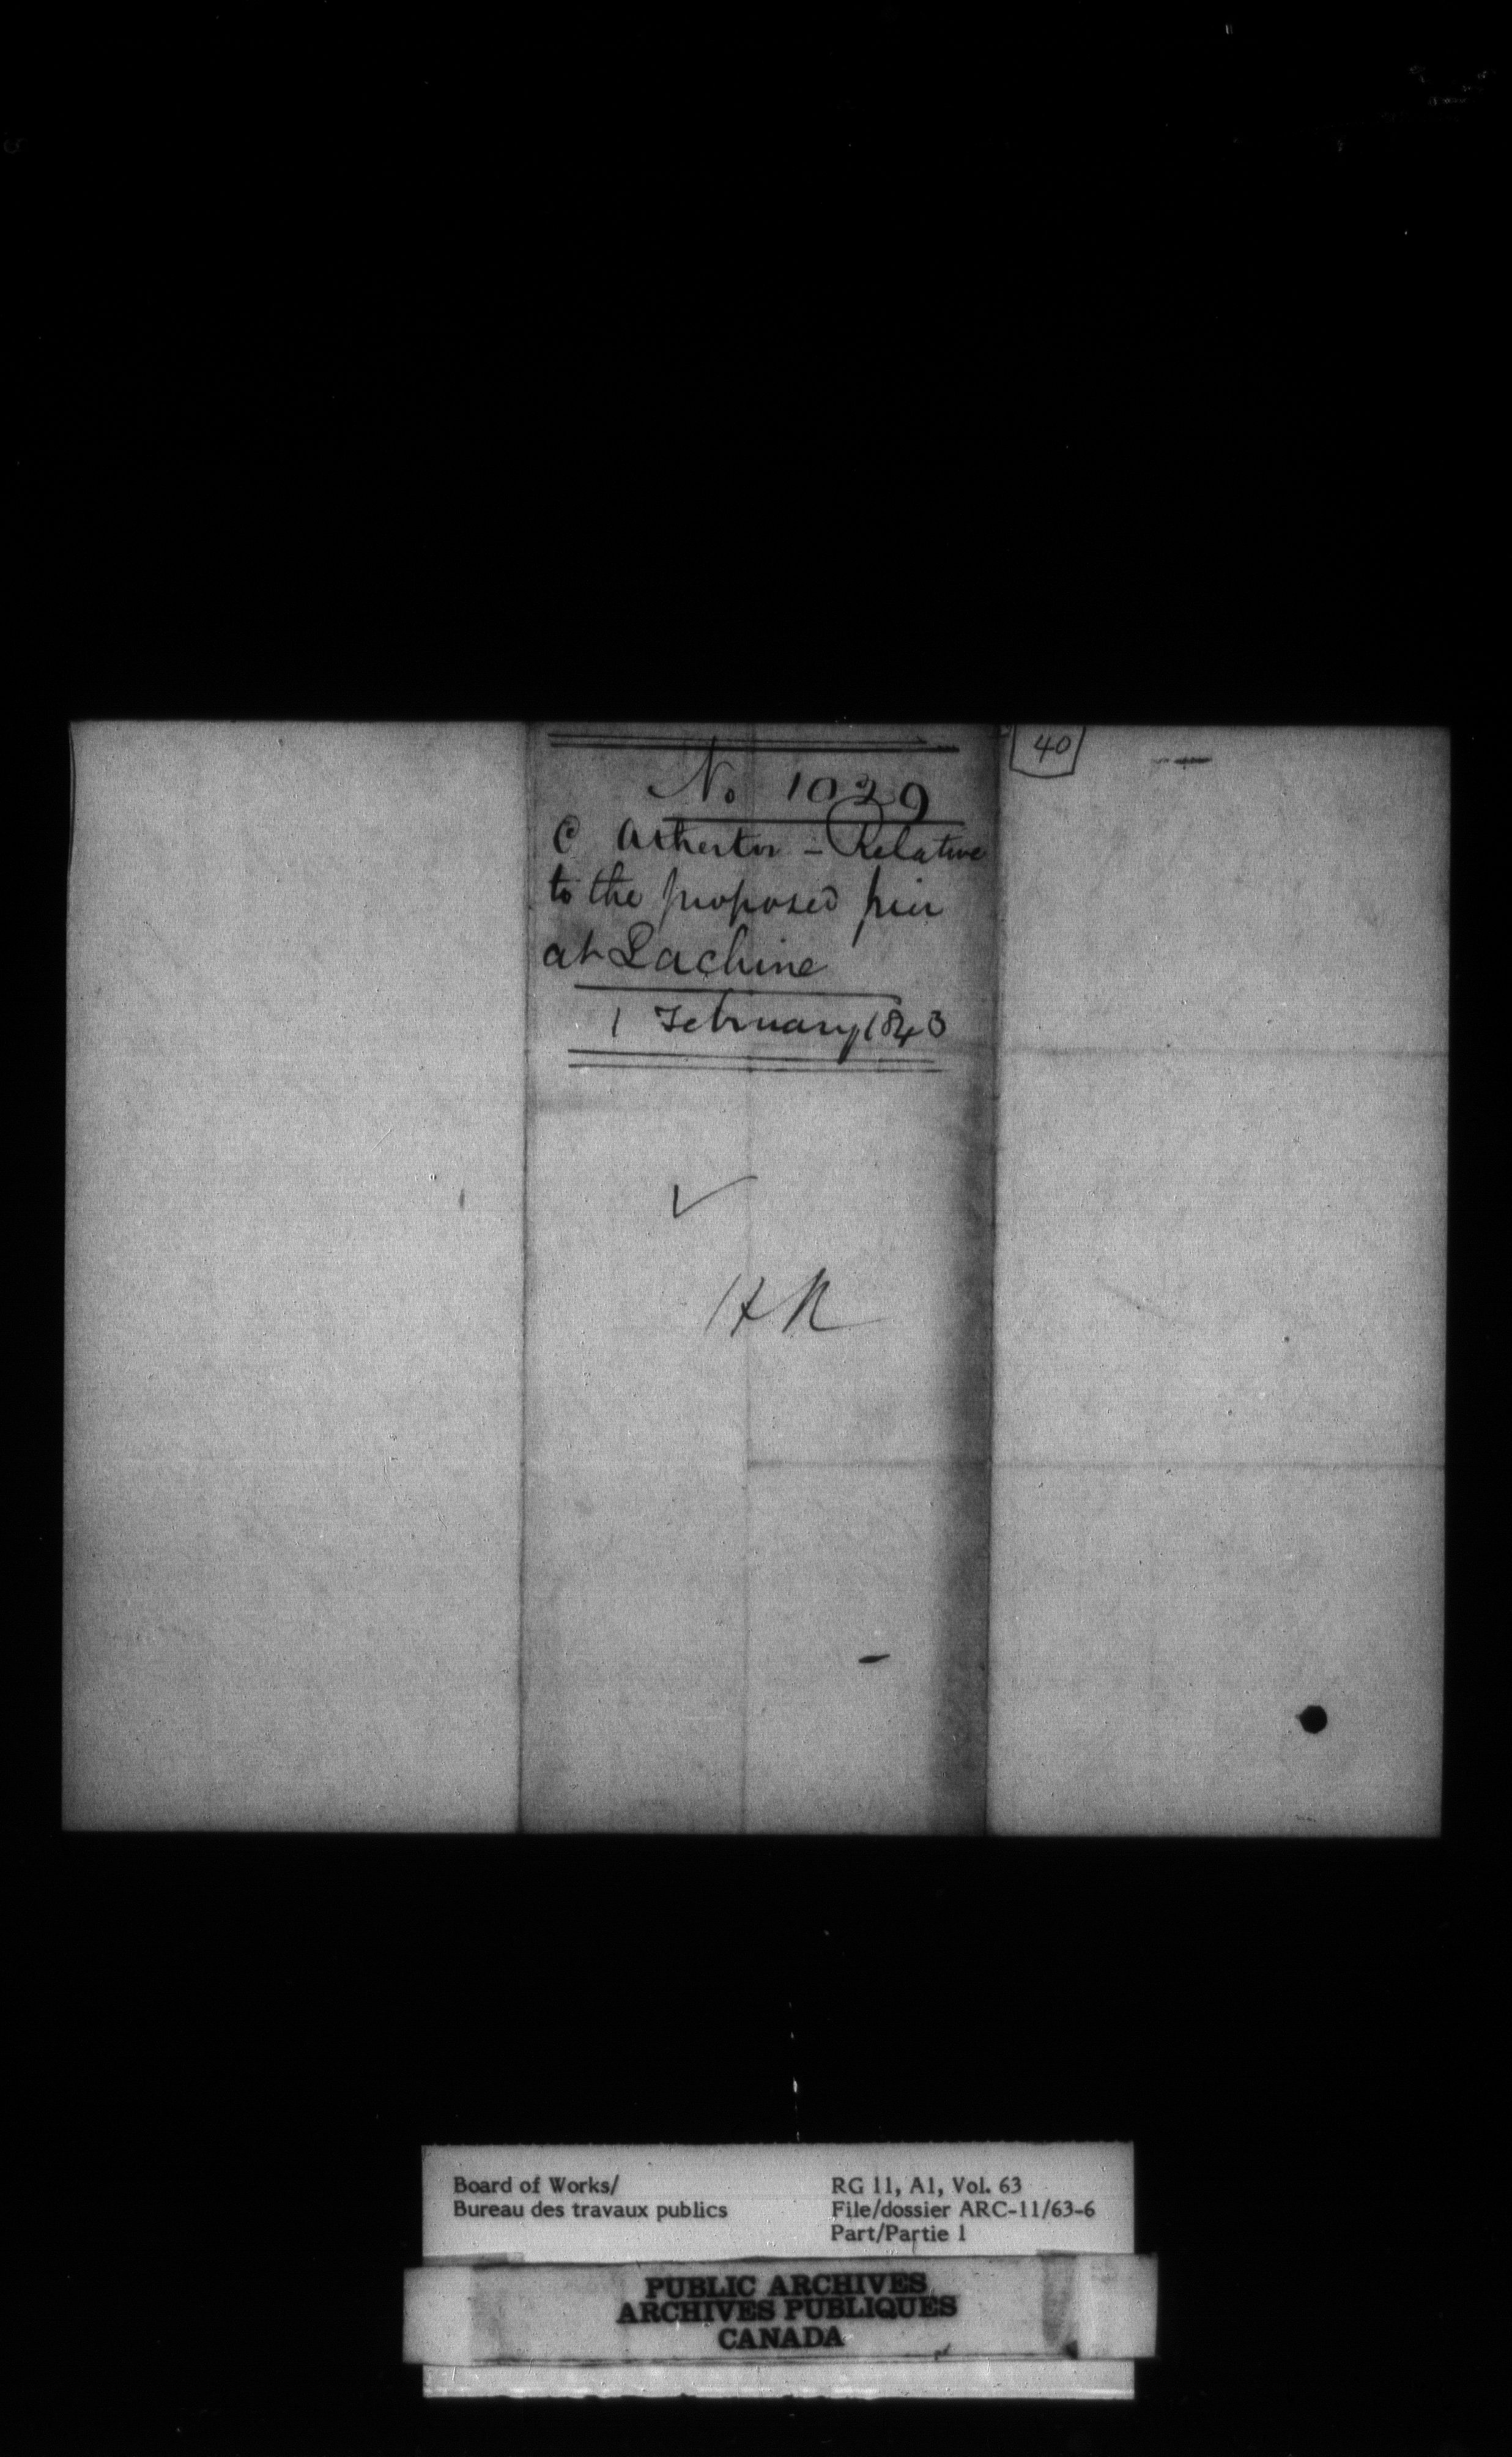 No 1029
C Atherton - Relative
to the proposed pier
at Lachine
1 February 1843
40
HK
Board of Works/
Bureau des travaux publics
RG 11, A1, Vol. 63
File/dossier ARC-11/63-6
Part/Partie 1
PUBLIC ARCHIVES
ARCHIVES PUBLIQUES
CANADA